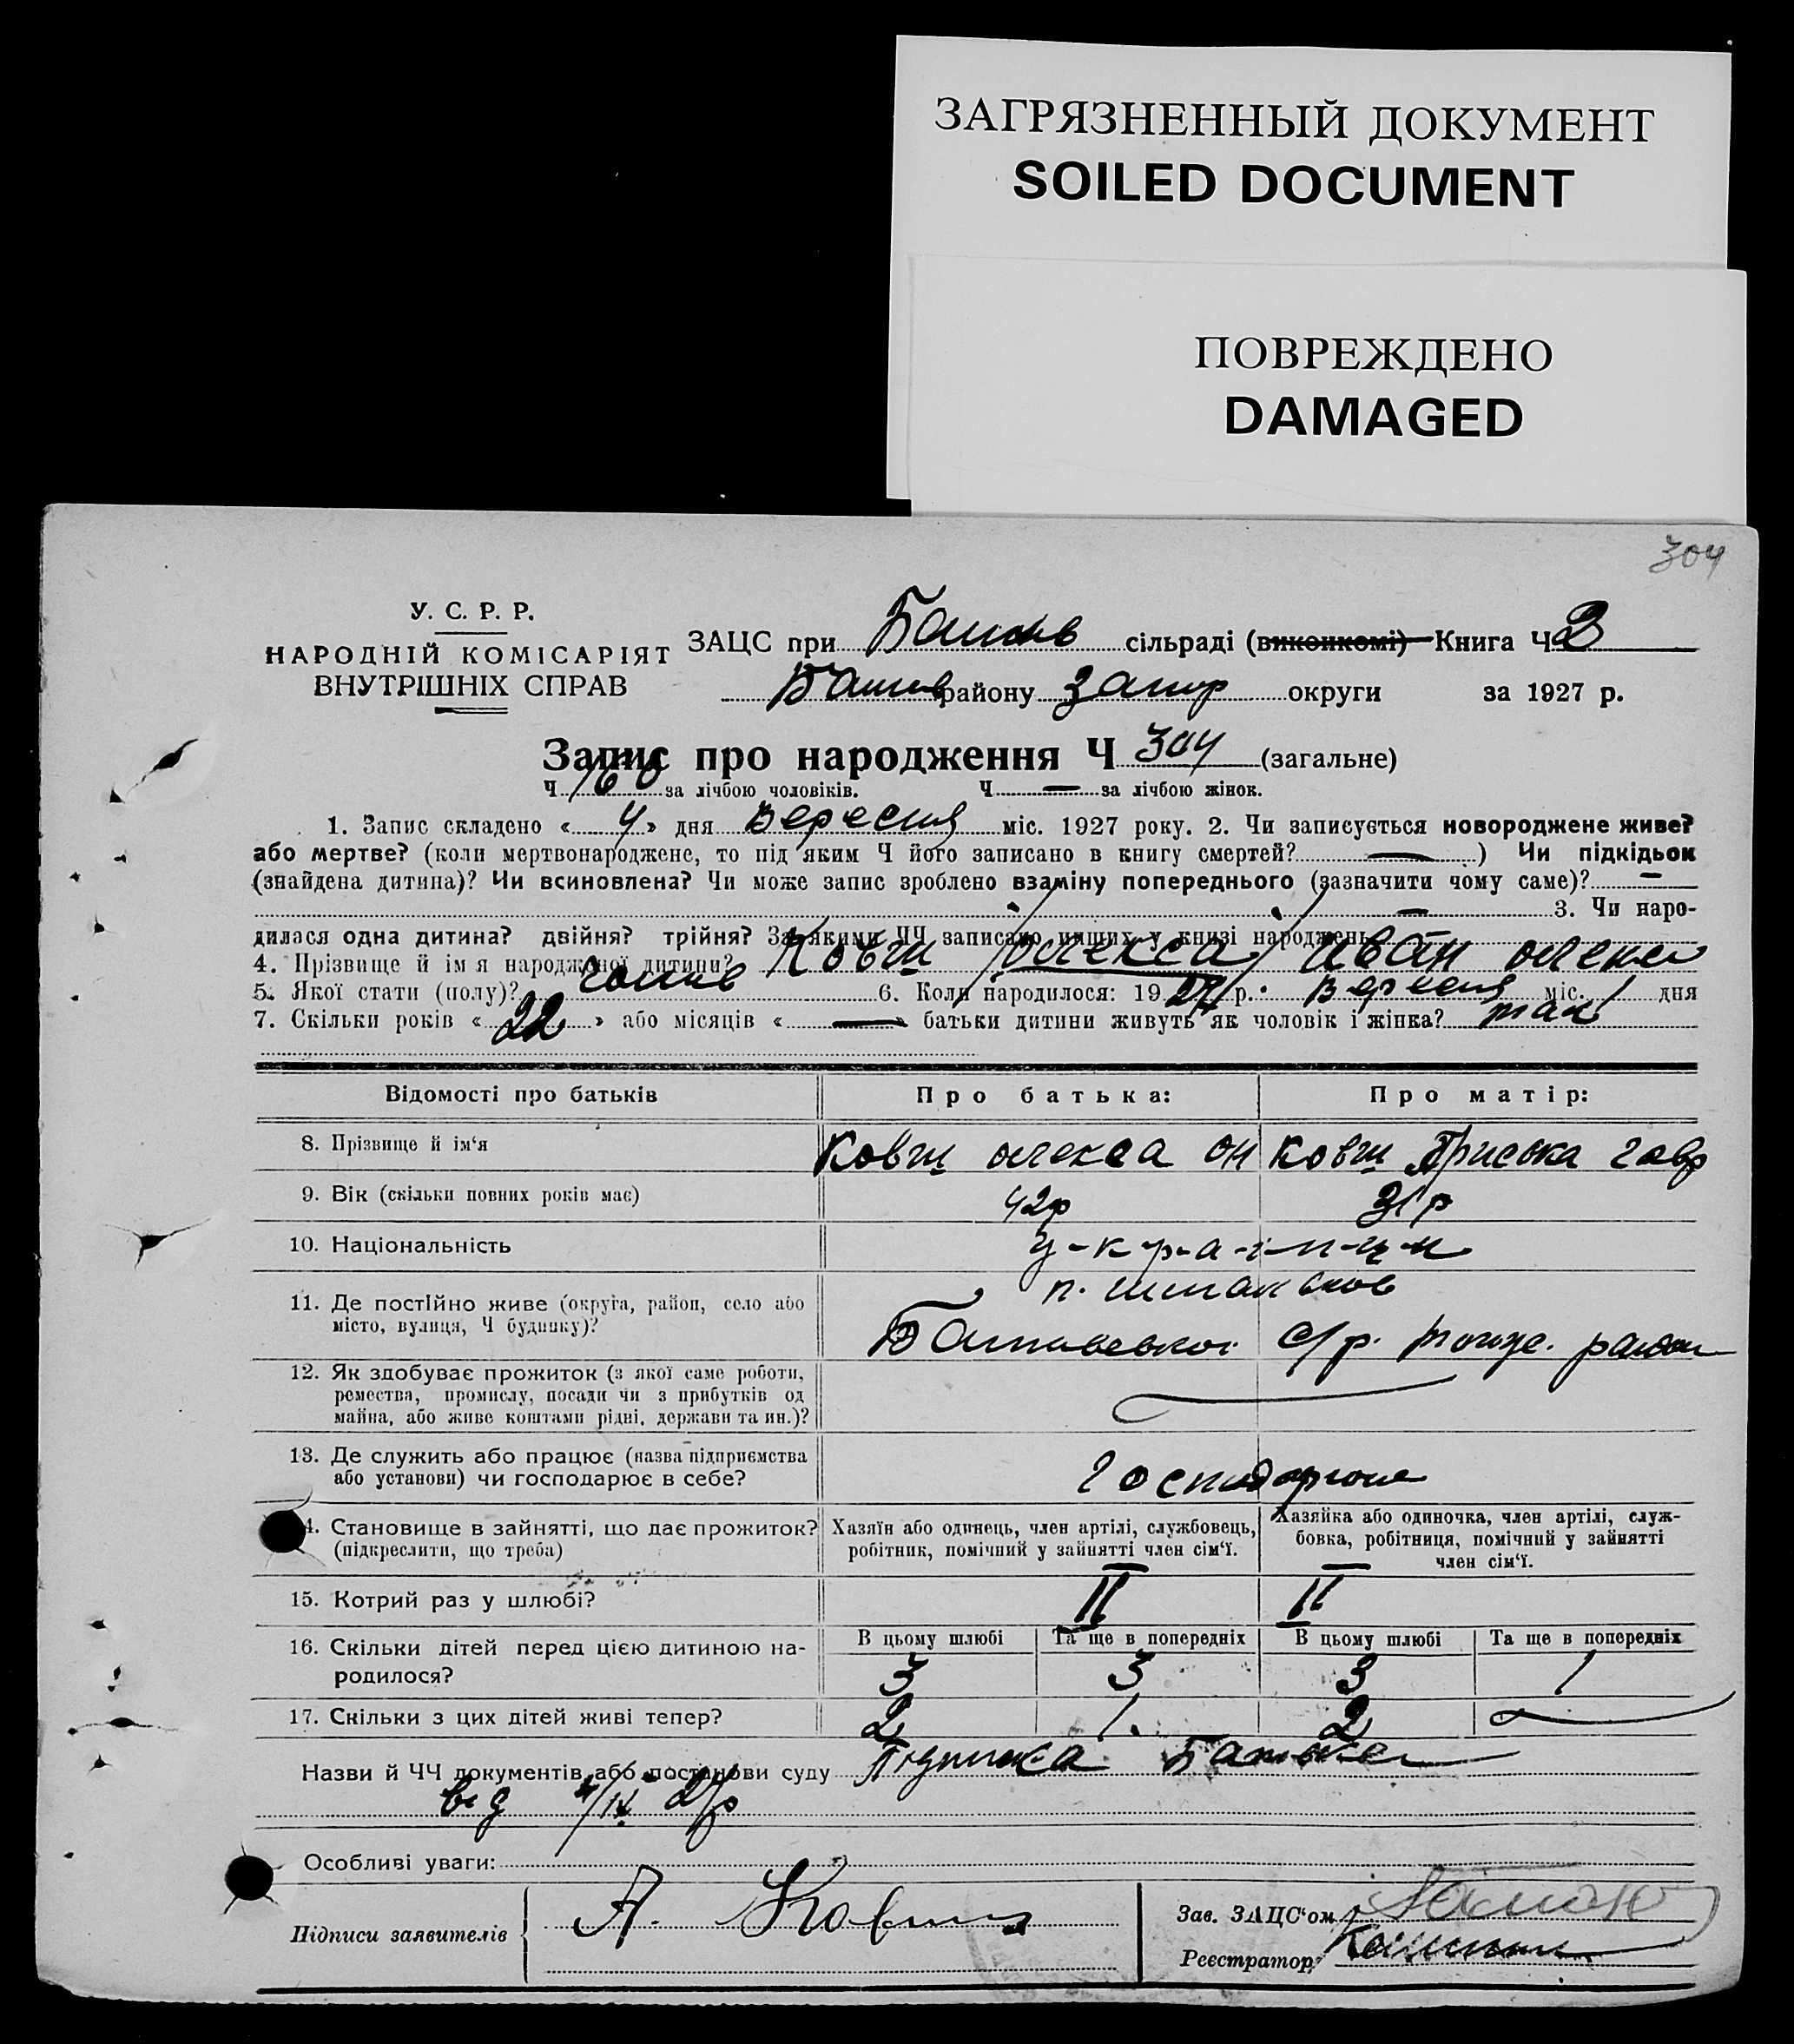 ЗАГРЯЗНЕННЫЙ ДОКУМЕНТ
SOILED DOCUMENT
ПОВРЕЖДЕНО
DAMAGED
304
У. С. Р. Р.
НАРОДНІЙ КОМІСАРІЯТ
ВНУТРІШНІХ СПРАВ
ЗАЦС при сільраді (виконкомі) Книга Ч 3
району Запор округи за 1927 р.
Запис про народження Ч 304 (загальне)
Ч 160 за лічбою чоловіків. Ч — за лічбою жінок.
1. Запис складено « 4 » дня Вересня міс. 1927 року. 2. Чи записується новороджене живе?
або мертве? (коли мертвонароджене, то під яким Ч його записано в книгу смертей? — ) Чи підкідьок
(знайдена дитина)? Чи всиновлена? Чи може запис зроблено взаміну попереднього (зазначити чому саме)? —
— 3. Чи наро-
дилася одна дитина? двійня? трійня? За якими ЧЧ записано инших у книзі народжень
4. Прізвище й ім'я народженої дитини? Ковш /олекса/ Иван олекс
5. Якої стати (полу)? 6. Коли народилося: 1927 р. Вересня міс. 1 дня
7. Скільки років « 22 » або місяців « — » батьки дитини живуть як чоловік і жінка? так
Відомості про батьків Про батька: Про матір:
8. Прізвище й ім'я Ковш олекса он Ковш Приська гавр
9. Вік (скільки повних років має) 42р 31р
10. Національність у-к-р-а-ї-н-ц-и
11. Де постійно живе (округа, район, село або
місто, вулиця, Ч будинку)? с/р. тогож. район
12. Як здобуває прожиток (з якої саме роботи,
ремества, промислу, посади чи з прибутків од
майна, або живе коштами рідні, держави та ин.)?
13. Де служить або працює (назва підприємства
або установи) чи господарює в себе?
4. Становище в зайнятті, що дає прожиток?
(підкреслити, що треба)
Хазяїн або одинець, член артілі, службовець,
робітник, помічний у зайнятті член сім'ї.
Хазяйка або одиночка, член артілі, служ-
бовка, робітниця, помічний у зайнятті
член сім'ї.
15. Котрий раз у шлюбі? II II
16. Скільки дітей перед цією дитиною на-
родилося?
В цьому шлюбі Та ще в попередніх В цьому шлюбі Та ще в попередніх
3 3 3 1
17. Скільки з цих дітей живі тепер? 2 1. 2 —
Назви й ЧЧ документів або постанови суду Підписка Батька
від 4/IX 27р
Особливі уваги:
Підписи заявителів А. Ковш
Зав. ЗАЦС'ом
Реєстратор